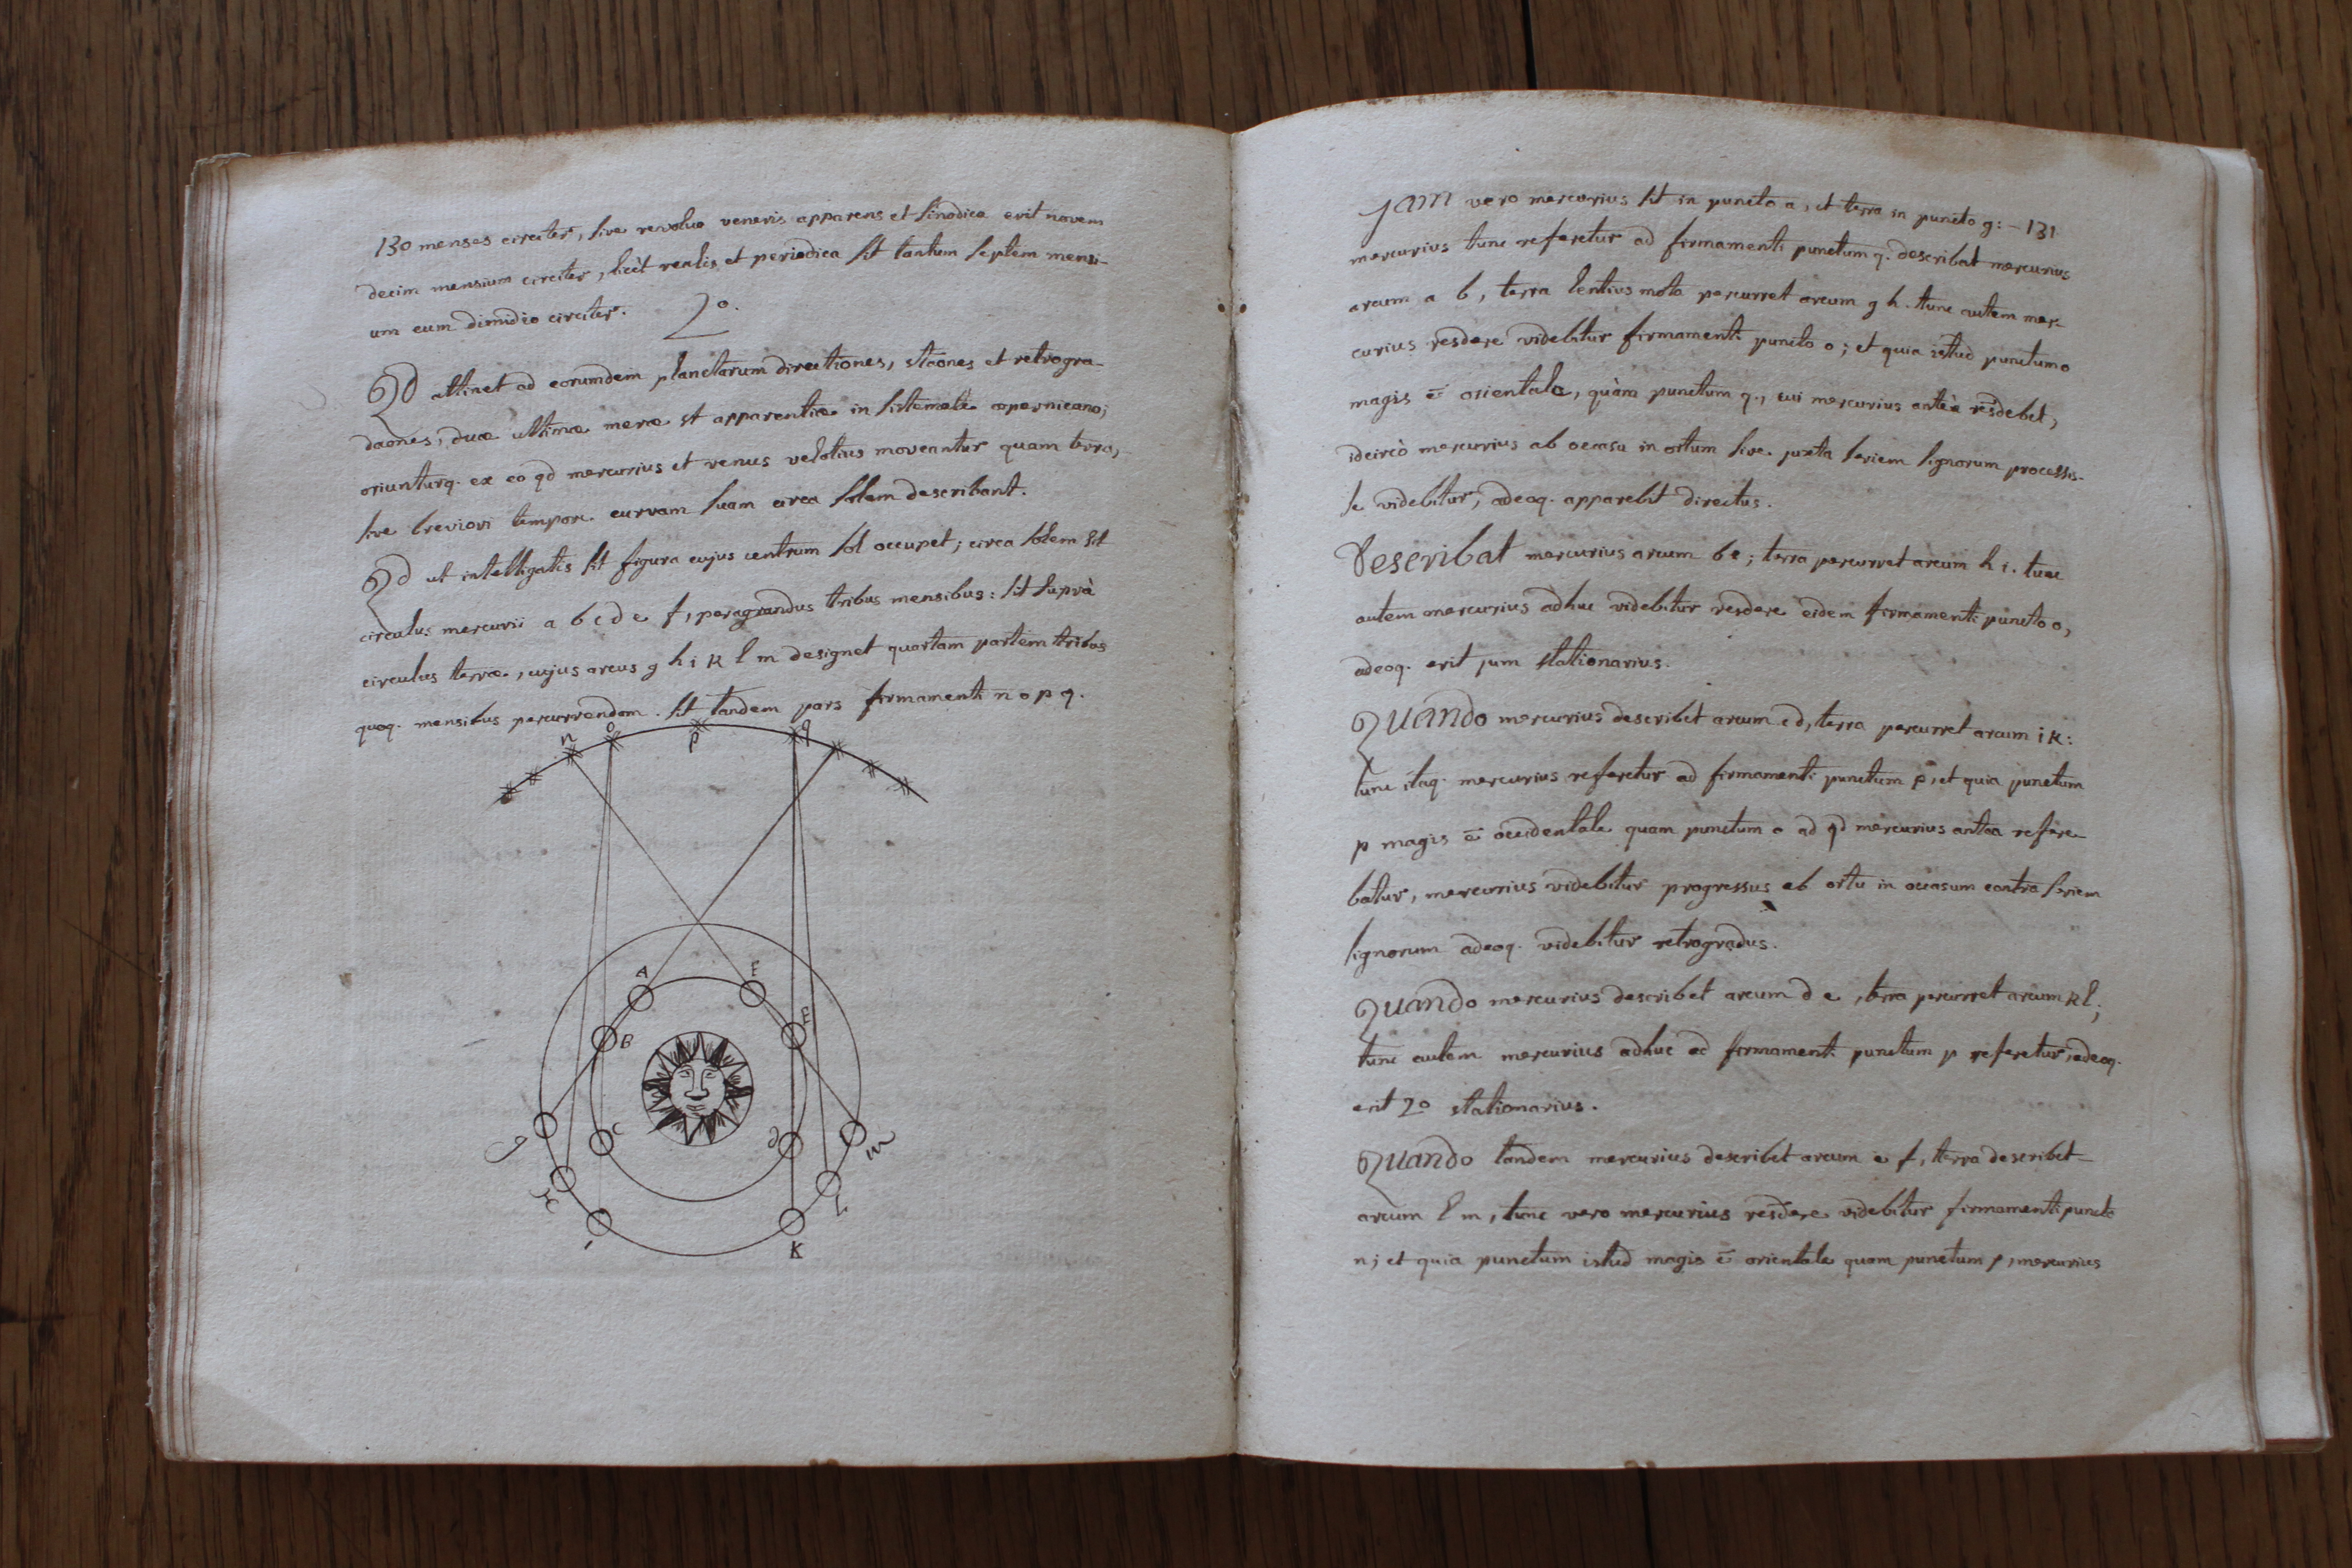 130 menses circiter, sive revoluo veneris apparens et sinodica erit novem
decim mensium circiter, licèt realis et periodica sit tantum septem mensi-
um cum dimidio circiter.
2°.
Qd attinet ad eorumdem planetarum directiones, staones et retrogra-
daones, duæ ultimæ meræ st apparentiæ in sistemate copernicano;
oriunturq. ex eo qd mercurius et venus velotius moveantur quam terra,
sive breviori tempore curvam suam circa solem describant.
Qd ut intelligatis sit figura cujus centrum sol occupet; circa solem sit
circulus mercurii a b c d e f, peragrandus tribus mensibus: sit suprà
circulus terræ, cujus arcus g h i k l m designet quartam partem tribus
quoq. mensibus percurrendam. sit tandem pars firmamenti n o p q.
n o p q
A F
B E
C d
g m
H L
I K
Jam vero mercurius sit in puncto a, et terra in puncto g: - 131
mercurius tunc referetur ad firmamenti punctum q. describat mercurius
arcum a b, terra lentius mota percurret arcum g h. tunc autem mer-
curius resdere videbitur firmamenti puncto o; et quia istud punctum o
magis ē orientale, quàm punctum q., cui mercurius anteà resdebet,
idcircò mercurius ab occasu in ortum sive juxta seriem signorum processis-
se videbitur, adeoq. apparebit directus.
Describat mercurius arcum b c; terra percurret arcum h i. tunc
autem mercurius adhuc videbitur resdere eidem firmamenti puncto o,
adeoq. erit jum stationarius.
Quando mercurius describet arcum c d, terra percurret arcum i k:
tunc itaq. mercurius referetur ad firmamenti punctum p, et quia punctum
p magis ē occidentale quam punctum o ad qd mercurius antea refere-
batur, mercurius videbitur progressus ab ortu in occasum contra seriem
signorum adeoq. videbitur retrogradus.
Quando mercurius describet arcum d e, terra percurret arcum k l;
tunc autem mercurius adhuc ad firmamenti punctum p referetur, adeoq.
erit 2° stationarius.
Quando tandem mercurius describet arcum e f, terra describet
arcum l m, tunc vero mercurius resdere videbitur firmamenti puncto
n; et quia punctum istud magis ē orientale quam punctum p, mercurius